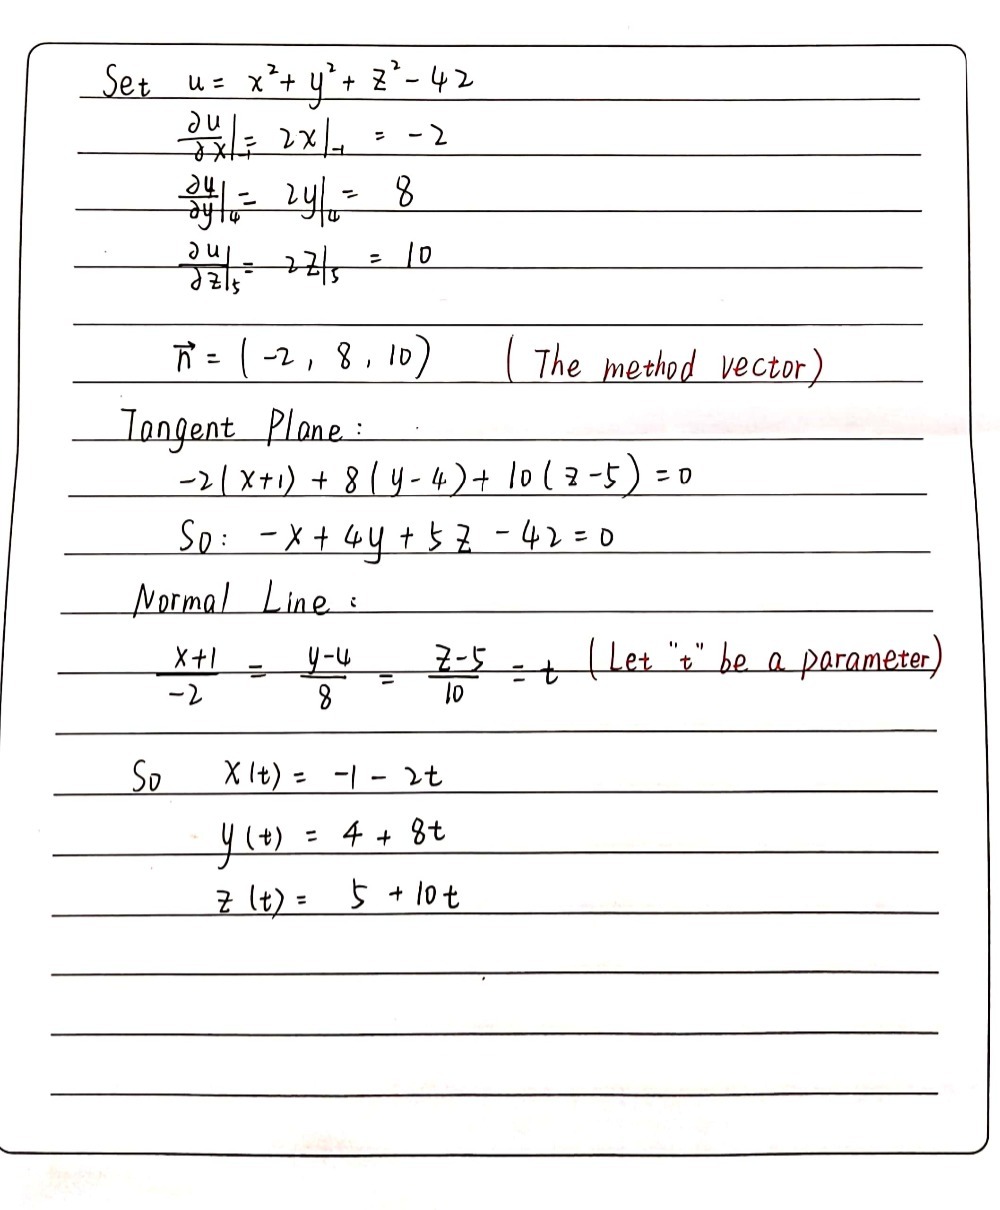 Set u = x² + y² + z² - 42
∂u/∂x|₋₁ = 2x|₋₁ = -2
∂u/∂y|₄ = 2y|₄ = 8
∂u/∂z|₅ = 2z|₅ = 10
n⃗ = (-2, 8, 10) (The method vector)
Tangent Plane:
-2(x+1) + 8(y-4) + 10(z-5) = 0
So: -x + 4y + 5z - 42 = 0
Normal Line:
(x+1)/-2 = (y-4)/8 = (z-5)/10 = t (Let "t" be a parameter)
So x(t) = -1 - 2t
y(t) = 4 + 8t
z(t) = 5 + 10t